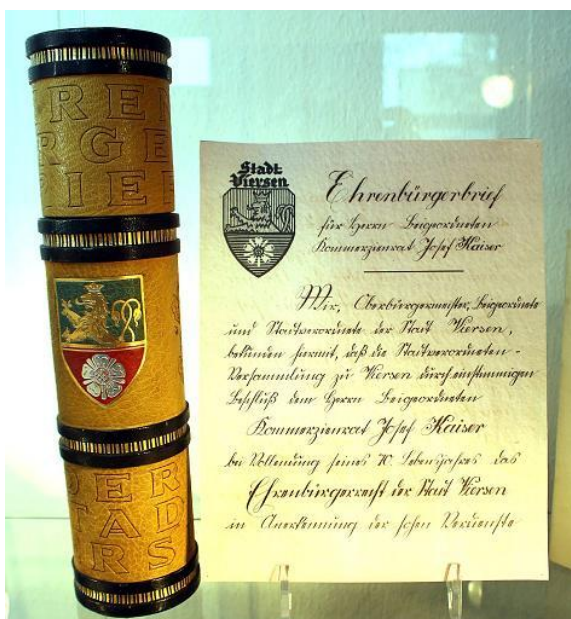 REN
RGE
RIEF
DER
STAD
RS
Stadt
Viersen
Ehrenbürgerbrief
für Herrn Beigeordneten
Kommerzienrat Josef Kaiser
Wir, Oberbürgermeister, Beigeordnete
und Stadtverordnete der Stadt Viersen,
bekunden hiermit, daß die Stadtverordneten-
Versammlung zu Viersen durch einstimmigen
Beschluß dem Herrn Beigeordneten
Kommerzienrat Josef Kaiser
bei Vollendung seines 70. Lebensjahres das
Ehrenbürgerrecht der Stadt Viersen
in Anerkennung der hohen Verdienste